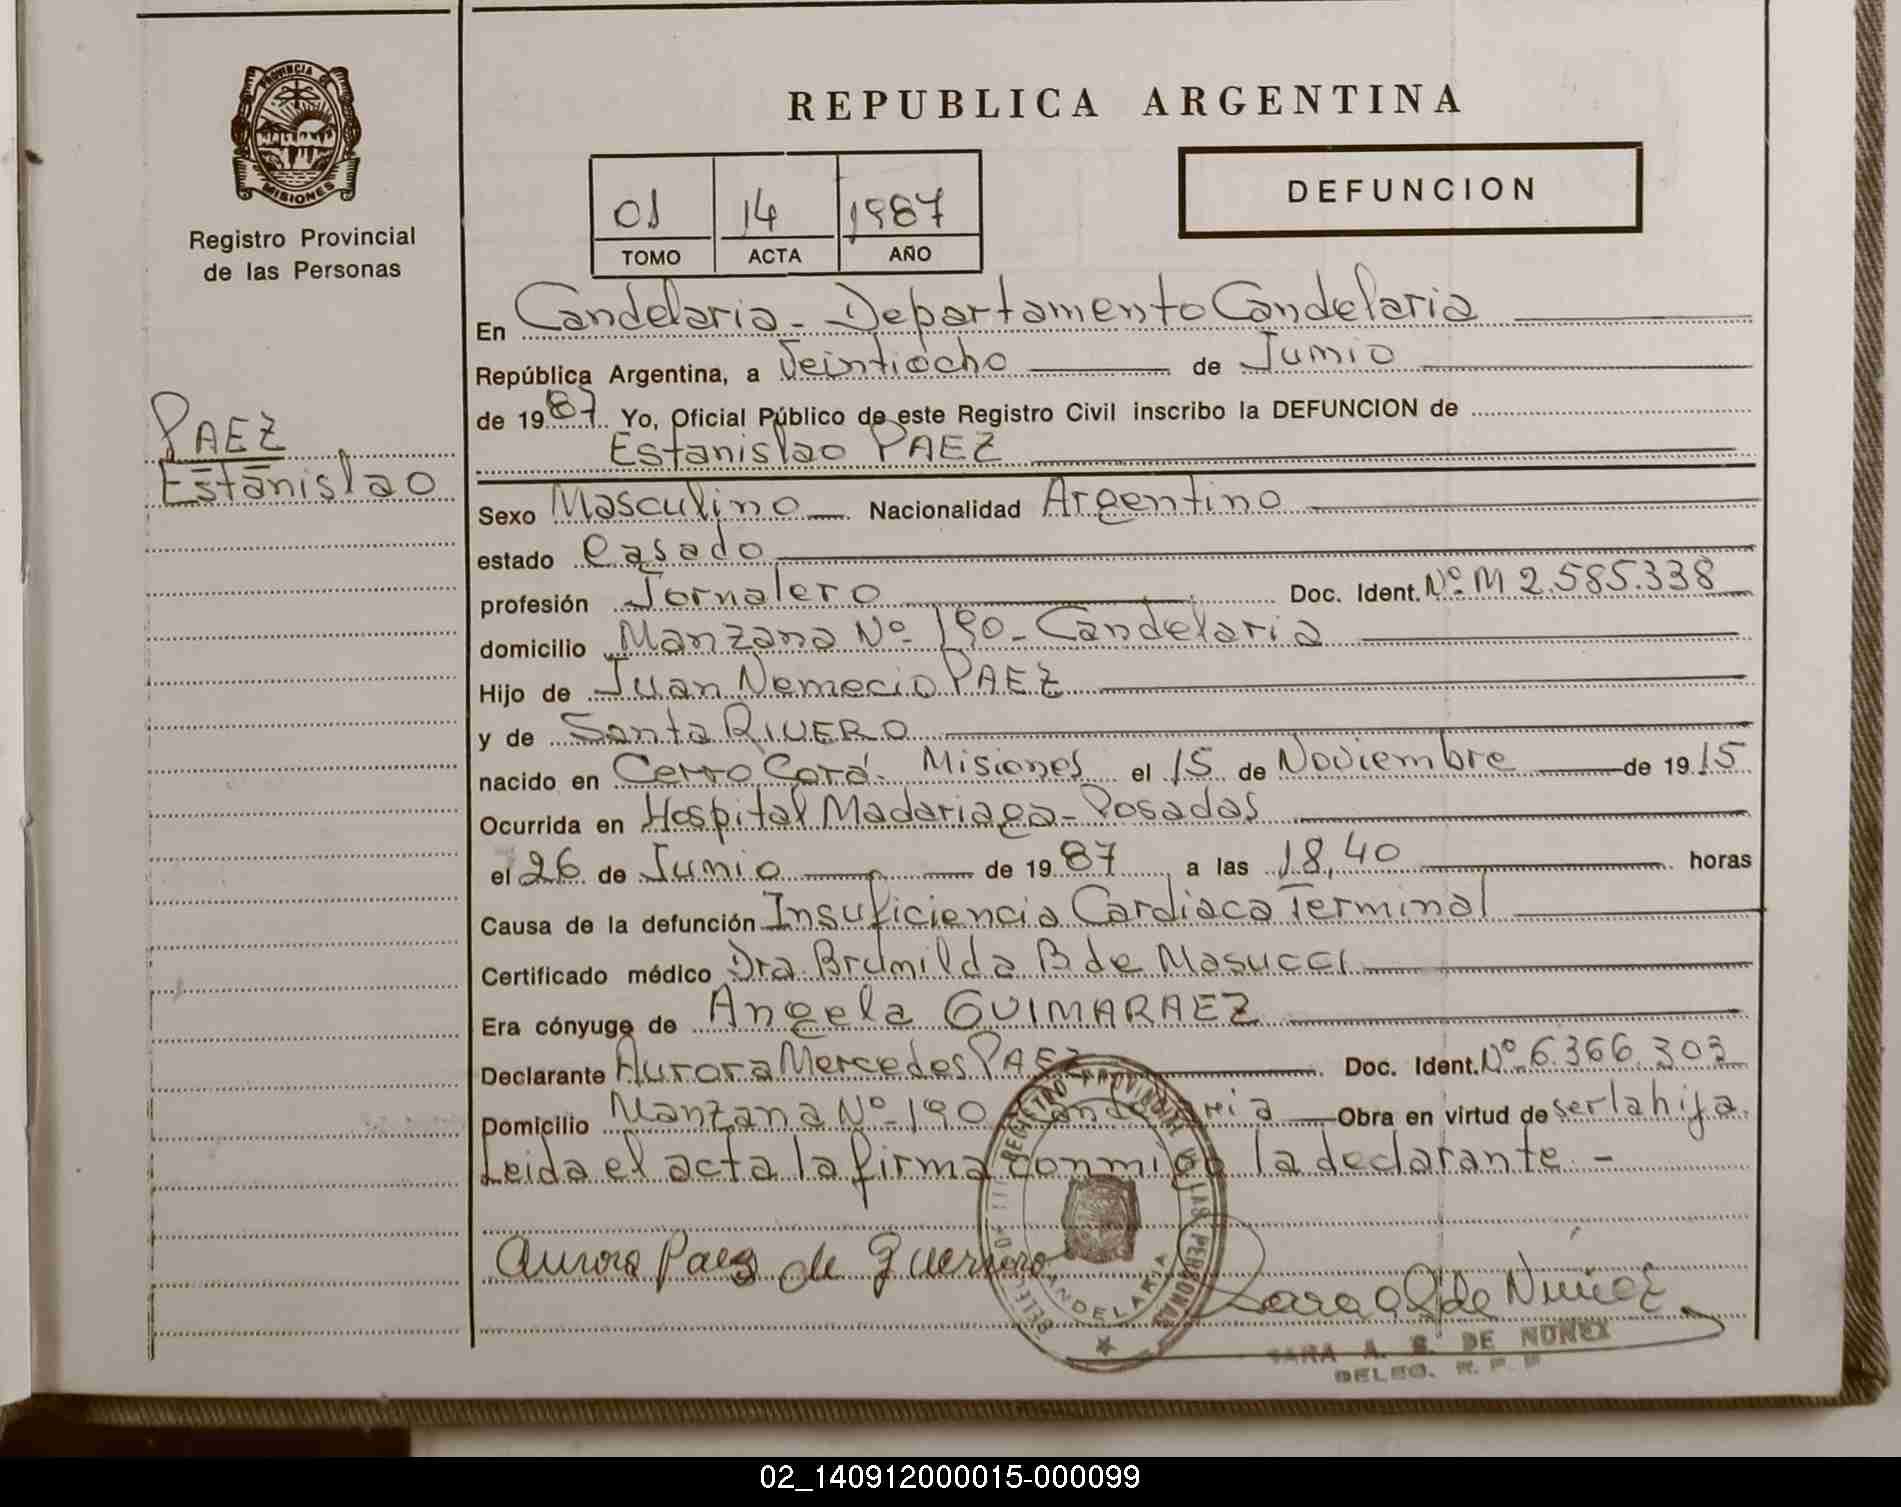 PROVINCIA DE
MISIONES
Registro Provincial
de las Personas
PAEZ
Estanislao
REPUBLICA ARGENTINA
01 14 1987
TOMO ACTA AÑO
DEFUNCION
En Candelaria - Departamento Candelaria
República Argentina, a Veintiocho de Junio
de 1987 Yo, Oficial Público de este Registro Civil inscribo la DEFUNCION de
Estanislao PAEZ
Sexo Masculino Nacionalidad Argentino
estado Casado
profesión Jornalero Doc. Ident. Nº M 2.585.338
domicilio Manzana Nº 190 - Candelaria
Hijo de Juan Nemecio PAEZ
y de Santa RIVERO
nacido en Cerro Corá - Misiones el 15 de Noviembre de 1915
Ocurrida en Hospital Madariaga - Posadas
el 26 de Junio de 1987 a las 18,40 horas
Causa de la defunción Insuficiencia Cardiaca Terminal
Certificado médico Dra. Brunilda B de Masucci
Era cónyuge de Angela GUIMARAEZ
Declarante Aurora Mercedes PAEZ Doc. Ident. Nº 6.366.303
Domicilio Manzana Nº 190 Candelaria Obra en virtud de ser la hija.
Leida el acta la firma conmigo la declarante -
Aurora Paez de Guerrero
REGISTRO PROVINCIAL DE LAS PERSONAS
CANDELARIA
Sara A S de Nuñez
SARA A. S. DE NUÑEZ
DELEG. R. P. P
02_140912000015-000099